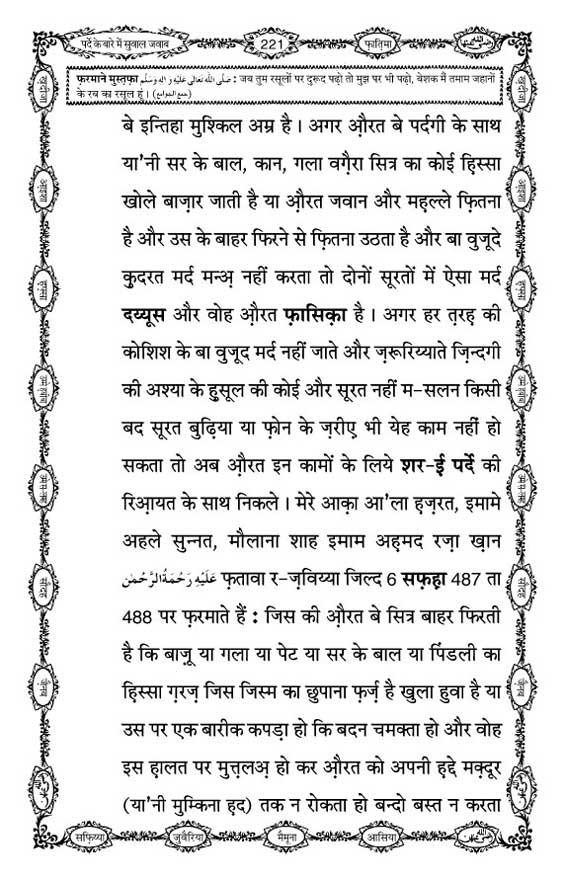 पर्दे के बारे में सुवाल जवाब
221
फ़ातिमा
फ़रमाने मुस्तफ़ा صَلَّى اللّٰهُ تَعَالٰى عَلَيْهِ وَاٰلِهٖ وَسَلَّم : जब तुम रसूलों पर दुरूद पढ़ो तो मुझ पर भी पढ़ो, बेशक मैं तमाम जहानों
के रब का रसूल हूं। (جمع الجوامع)
बे इन्तिहा मुश्किल अम्र है। अगर औ़रत बे पर्दगी के साथ
या'नी सर के बाल, कान, गला वग़ैरा सित्र का कोई ह़िस्सा
खोले बाज़ार जाती है या औ़रत जवान और मह़ल्ले फ़ितना
है और उस के बाहर फिरने से फ़ितना उठता है और बा वुजूदे
कुदरत मर्द मन्अ़ नहीं करता तो दोनों सूरतों में ऐसा मर्द
दय्यूस और वोह औ़रत फ़ासिक़ा है। अगर हर त़रह़ की
कोशिश के बा वुजूद मर्द नहीं जाते और ज़रूरिय्याते ज़िन्दगी
की अश्या के ह़ुसूल की कोई और सूरत नहीं म-सलन किसी
बद सूरत बुढ़िया या फ़ोन के ज़रीए भी येह काम नहीं हो
सकता तो अब औ़रत इन कामों के लिये शर-ई़ पर्दे की
रिआ़यत के साथ निकले। मेरे आक़ा आ'ला ह़ज़रत, इमामे
अहले सुन्नत, मौलाना शाह इमाम अह़मद रज़ा ख़ान
عَلَيْهِ رَحْمَةُ الرَّحْمٰن फ़तावा र-ज़विय्या जिल्द 6 सफ़ह़ा 487 ता
488 पर फ़रमाते हैं : जिस की औ़रत बे सित्र बाहर फिरती
है कि बाज़ू या गला या पेट या सर के बाल या पिंडली का
ह़िस्सा ग़रज़ जिस जिस्म का छुपाना फ़र्ज़ है खुला हुवा है या
उस पर एक बारीक कपड़ा हो कि बदन चमकता हो और वोह
इस ह़ालत पर मुत्तलअ़ हो कर औ़रत को अपनी ह़द्दे मक़्दूर
(या'नी मुम्किना ह़द) तक न रोकता हो बन्दो बस्त न करता
सफ़िय्या
जुवैरिया
मैमूना
आसिया